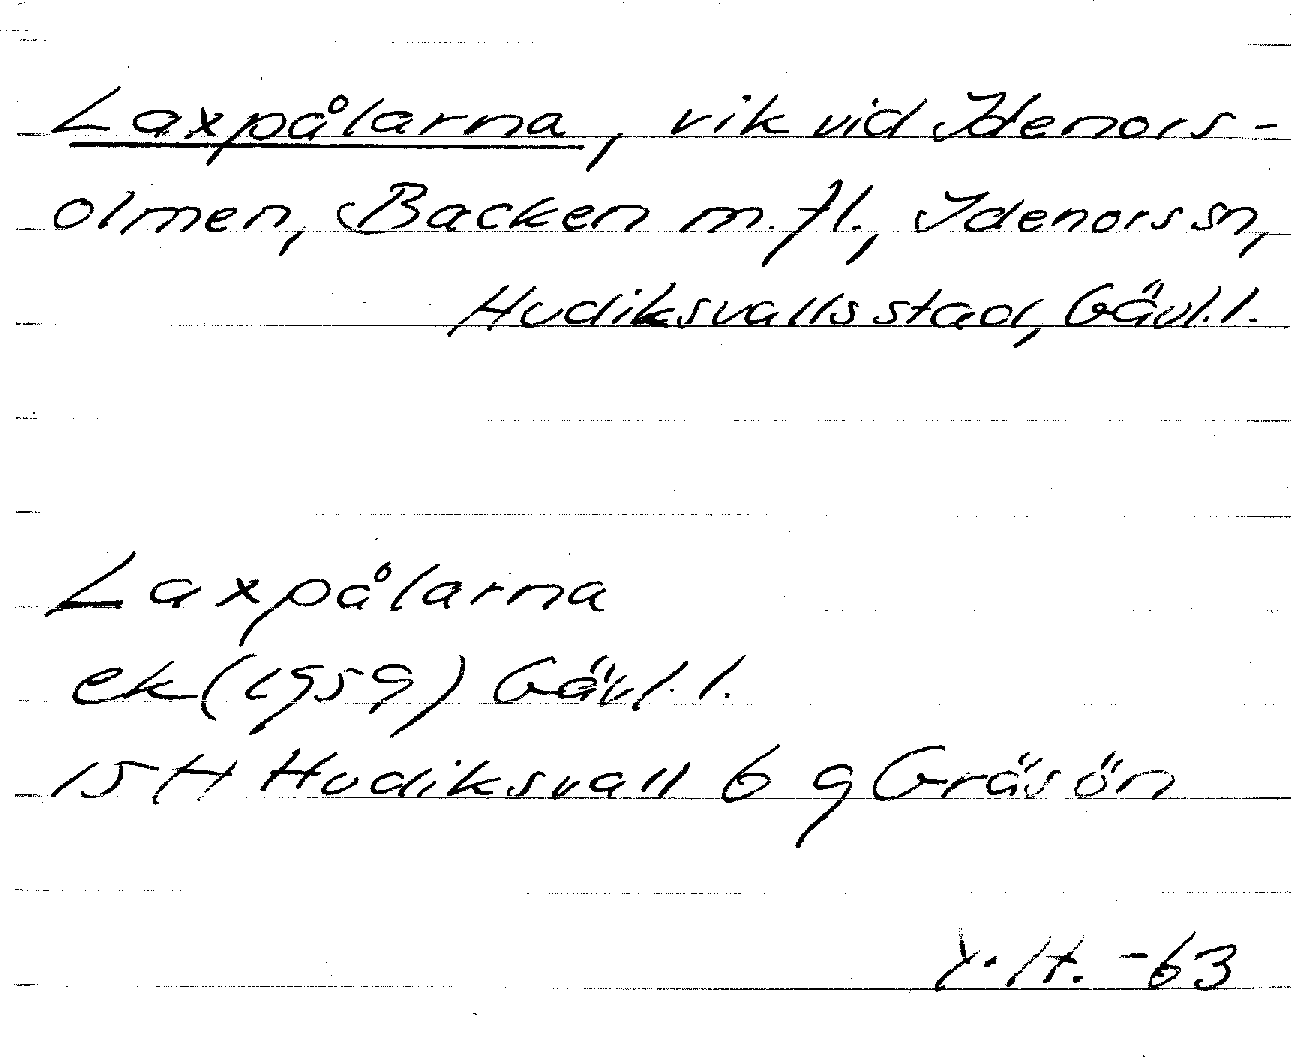 Laxpålarna, vik vid Idenors-
olmen, Backen m.fl., Idenors sn,
Hudiksvalls stad, Gävl.l.
Laxpålarna
ek (1959) Gävl.l.
15 H Hudiksvall 6 g Gräsön
Y.H. -63